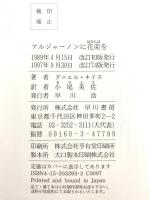 検印
廃止
アルジャーノンに花束を
はなたば
1989年4月15日 改訂初版発行
1997年9月30日 改訂7刷発行
著者 ダニエル・キイス
訳者 小尾芙佐
発行者 早川 浩
発行所 株式会社 早川書房
東京都千代田区神田多町2−2
電話 03-3252-3111(大代表)
振替 00160-3-47799
印刷所 株式会社亨有堂印刷所
製本所 大口製本印刷株式会社
定価はカバーに表示してあります
ISBN4-15-203393-2 C0097
Printed and bound in Japan